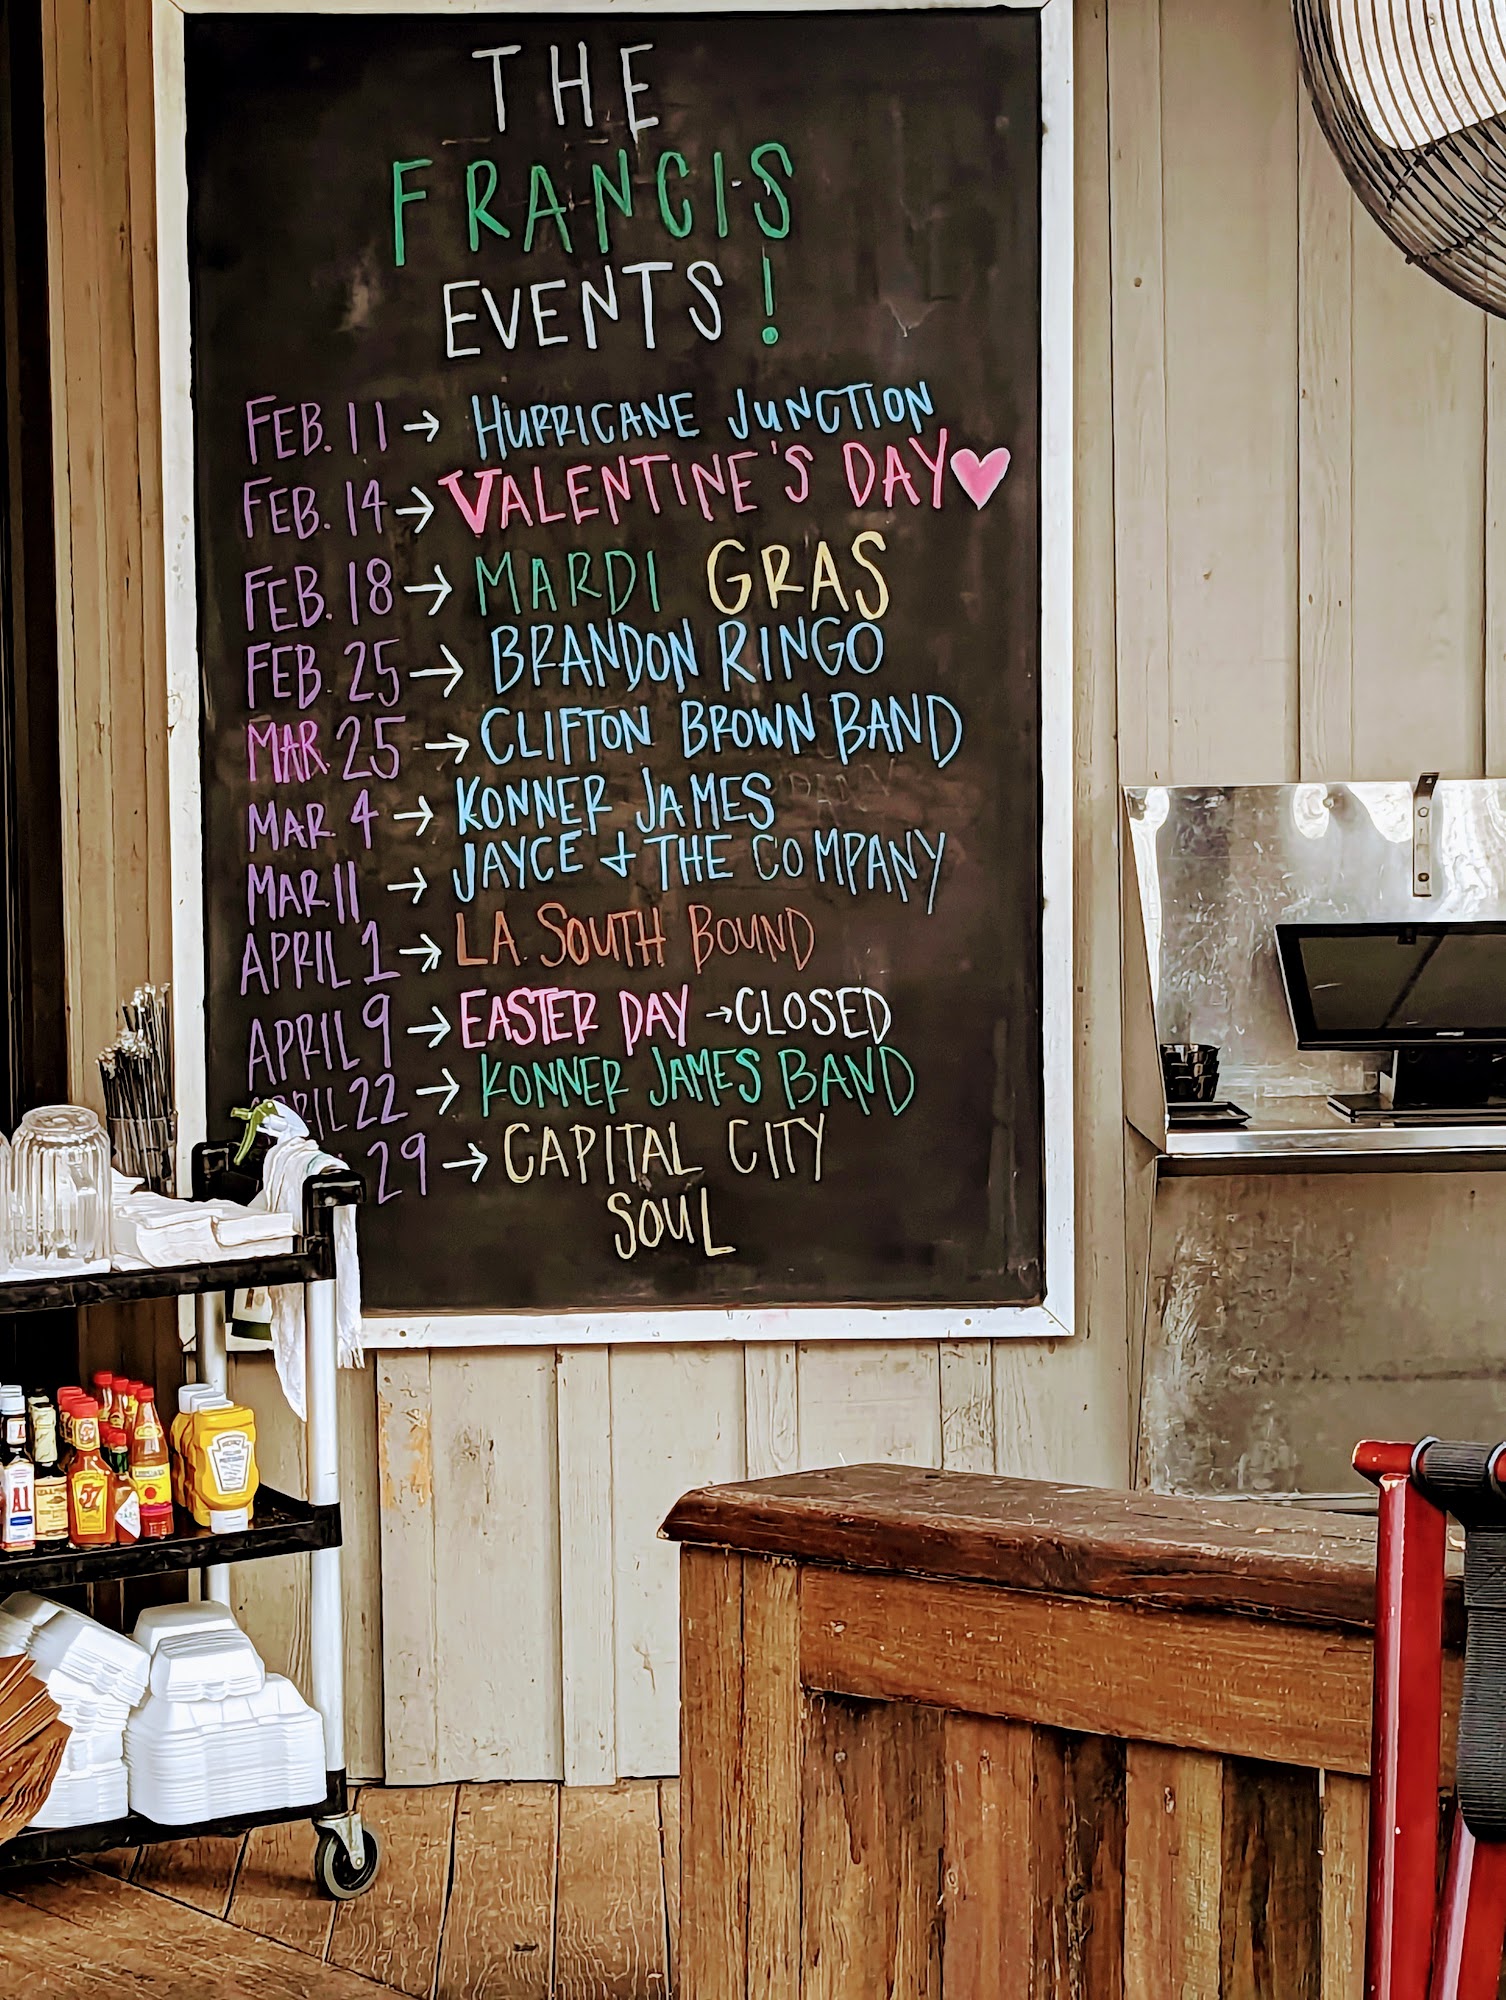 THE
FRANCIS
EVENTS!
FEB. 11 → HURRICANE JUNCTION
FEB. 14 → VALENTINE'S DAY
FEB. 18 → MARDI GRAS
FEB. 25 → BRANDON RINGO
MAR. 25 → CLIFTON BROWN BAND
MAR 4 → KONNER JAMES
MAR 11 → JAYCE + THE COMPANY
APRIL 1 → LA. SOUTH BOUND
APRIL 9 → EASTER DAY → CLOSED
APRIL 22 → KONNER JAMES BAND
29 → CAPITAL CITY
SOUL
A1
57